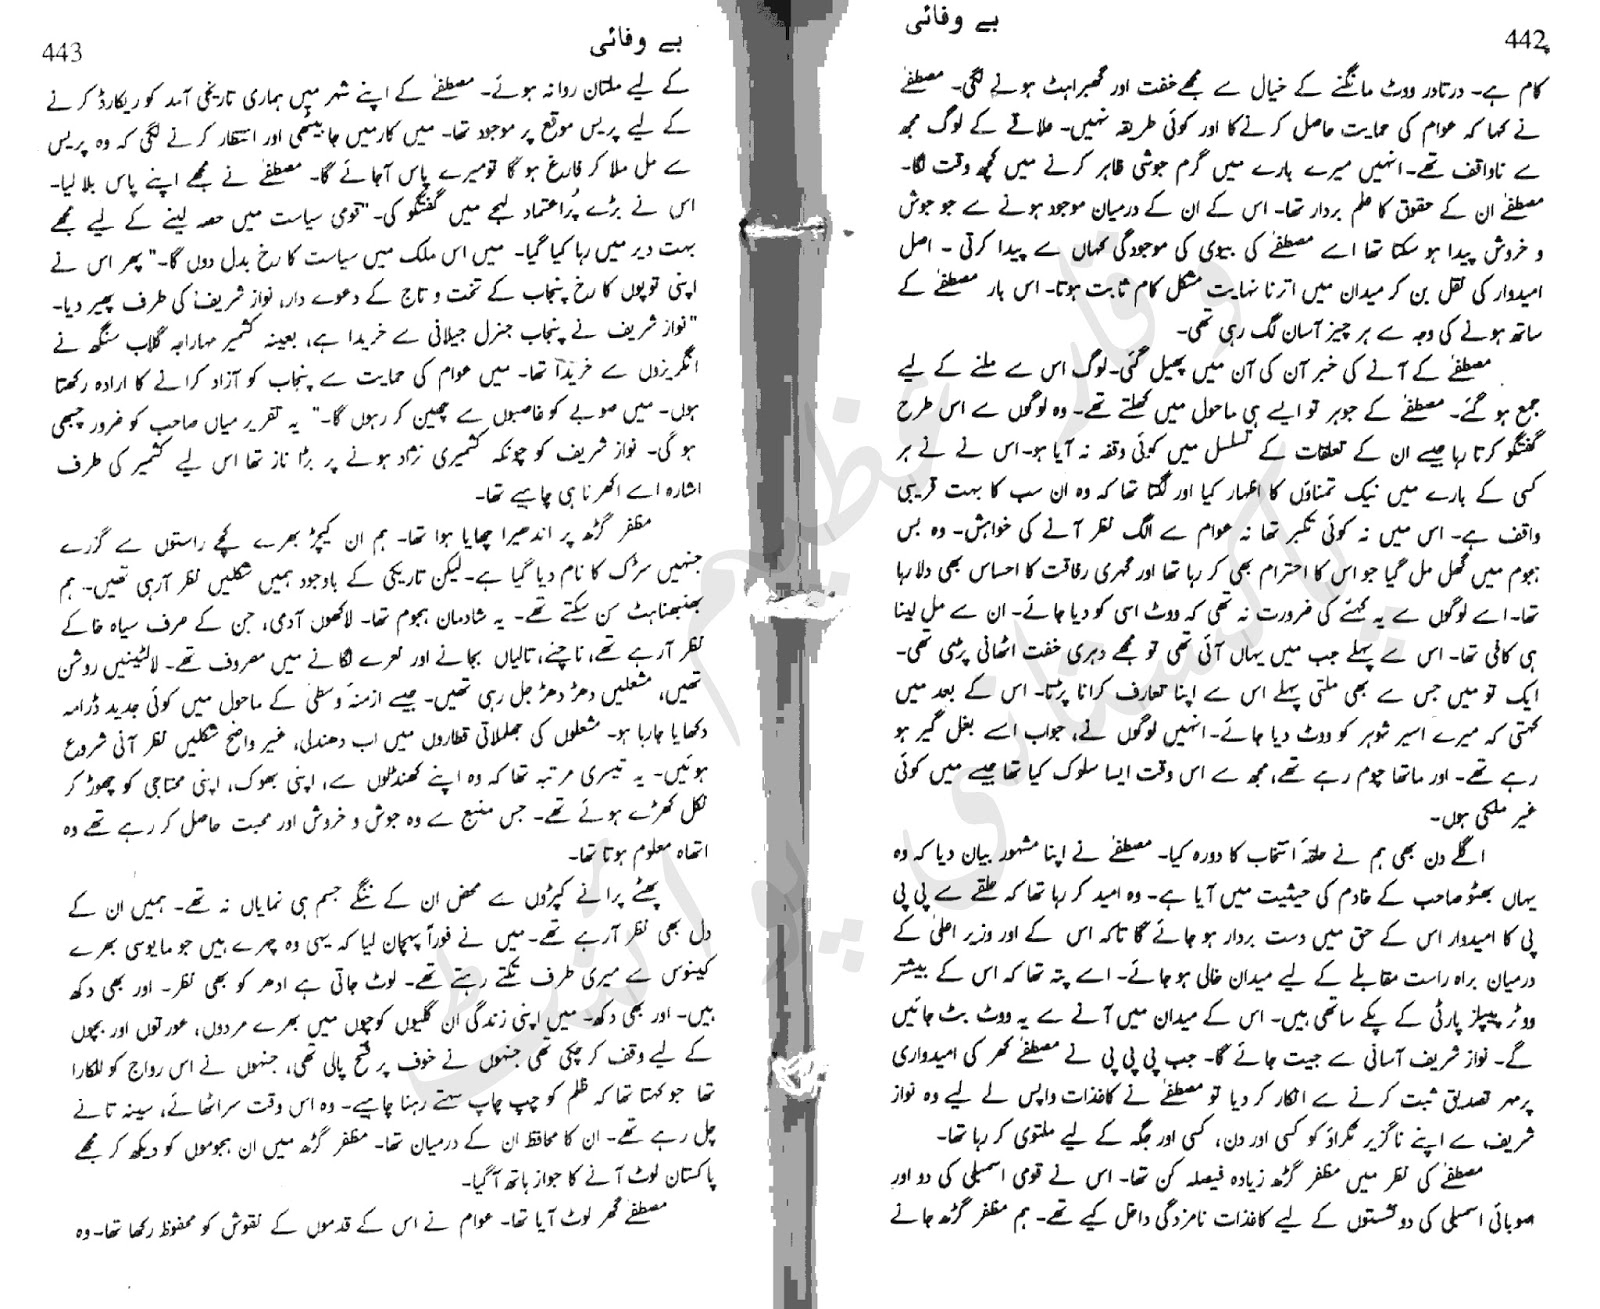 442
بے وفائی
کام ہے۔ در تا در ووٹ مانگنے کے خیال سے مجھے خفت اور گھبراہٹ ہونے لگی۔ مصطفےٰ
نے کہا کہ عوام کی حمایت حاصل کرنے کا اور کوئی طریقہ نہیں۔ علاقے کے لوگ مجھ
سے ناواقف تھے۔ انہیں میرے بارے میں گرم جوشی ظاہر کرنے میں کچھ وقت لگا۔
مصطفےٰ ان کے حقوق کا علم بردار تھا۔ اس کے ان کے درمیان موجود ہونے سے جو جوش
و خروش پیدا ہو سکتا تھا اسے مصطفےٰ کی بیوی کی موجودگی کہاں سے پیدا کرتی۔ اصل
امیدوار کی نقل بن کر میدان میں اترنا نہایت مشکل کام ثابت ہوتا۔ اس بار مصطفےٰ کے
ساتھ ہونے کی وجہ سے ہر چیز آسان لگ رہی تھی۔
مصطفےٰ کے آنے کی خبر آن کی آن میں پھیل گئی۔ لوگ اس سے ملنے کے لیے
جمع ہو گئے۔ مصطفےٰ کے جوہر تو ایسے ہی ماحول میں کھلتے تھے۔ وہ لوگوں سے اس طرح
گفتگو کرتا رہا جیسے ان کے تعلقات کے تسلسل میں کوئی وقفہ نہ آیا ہو۔ اس نے نے ہر
کسی کے بارے میں نیک تمناؤں کا اظہار کیا اور لگتا تھا کہ وہ ان سب کا بہت قریبی
واقف ہے۔ اس میں نہ کوئی تکبر تھا نہ عوام سے الگ نظر آنے کی خواہش۔ وہ بس
ہجوم میں گھل مل گیا جو اس کا احترام بھی کر رہا تھا اور گہری رفاقت کا احساس بھی دلا رہا
تھا۔ اسے لوگوں سے یہ کہنے کی ضرورت نہ تھی کہ ووٹ اسی کو دیا جائے۔ ان سے مل لینا
ہی کافی تھا۔ اس سے پہلے جب میں یہاں آئی تھی تو مجھے دہری خفت اٹھانی پڑی تھی۔
ایک تو میں جس سے بھی ملتی پہلے اس سے اپنا تعارف کرانا پڑتا۔ اس کے بعد میں
کہتی کہ میرے اسیر شوہر کو ووٹ دیا جائے۔ انہیں لوگوں نے، جواب اسے بغل گیر ہو
رہے تھے۔ اور ماتھا چوم رہے تھے، مجھ سے اس وقت ایسا سلوک کیا تھا جیسے میں کوئی
غیر ملکی ہوں۔
اگلے دن بھی ہم نے حلقۂ انتخاب کا دورہ کیا۔ مصطفےٰ نے اپنا مشہور بیان دیا کہ وہ
یہاں بھٹو صاحب کے خادم کی حیثیت میں آیا ہے۔ وہ امید کر رہا تھا کہ حلقے سے پی پی
پی کا امیدوار اس کے حق میں دست بردار ہو جائے گا تاکہ اس کے اور وزیر اعلیٰ کے
درمیان براہ راست مقابلے کے لیے میدان خالی ہو جائے۔ اسے پتہ تھا کہ اس کے بیشتر
ووٹر پیپلز پارٹی کے پکے ساتھی ہیں۔ اس کے میدان میں آنے سے یہ ووٹ بٹ جائیں
گے۔ نواز شریف آسانی سے جیت جائے گا۔ جب پی پی پی نے مصطفےٰ کھر کی امیدواری
پر مہر تصدیق ثبت کرنے سے انکار کر دیا تو مصطفےٰ نے کاغذات واپس لے لیے وہ نواز
شریف سے اپنے ناگزیر ٹکراؤ کو کسی اور دن، کسی اور جگہ کے لیے ملتوی کر رہا تھا۔
مصطفےٰ کی نظر میں مظفر گڑھ زیادہ فیصلہ کن تھا۔ اس نے قومی اسمبلی کی دو اور
صوبائی اسمبلی کی دو نشستوں کے لیے کاغذات نامزدگی داخل کیے تھے۔ ہم مظفر گڑھ جانے
443
بے وفائی
کے لیے ملتان روانہ ہوئے۔ مصطفےٰ کے اپنے شہر میں ہماری تاریخی آمد کو ریکارڈ کرنے
کے لیے پریس موقع پر موجود تھا۔ میں کار میں جا بیٹھی اور انتظار کرنے لگی کہ وہ پریس
سے مل ملا کر فارغ ہو گا تو میرے پاس آجائے گا۔ مصطفےٰ نے مجھے اپنے پاس بلا لیا۔
اس نے بڑے پُراعتماد لہجے میں گفتگو کی۔ "قومی سیاست میں حصہ لینے کے لیے مجھے
بہت دیر میں رہا کیا گیا۔ میں اس ملک میں سیاست کا رخ بدل دوں گا۔" پھر اس نے
اپنی توپوں کا رخ پنجاب کے تخت و تاج کے دعوے دار، نواز شریف کی طرف پھیر دیا۔
"نواز شریف نے پنجاب جنرل جیلانی سے خریدا ہے، بعینہ کشمیر مہاراجہ گلاب سنگھ نے
انگریزوں سے خریدا تھا۔ میں عوام کی حمایت سے پنجاب کو آزاد کرانے کا ارادہ رکھتا
ہوں۔ میں صوبے کو غاصبوں سے چھین کر رہوں گا۔" یہ تقریر میاں صاحب کو ضرور چبھی
ہو گی۔ نواز شریف کو چونکہ کشمیری نژاد ہونے پر بڑا ناز تھا اس لیے کشمیر کی طرف
اشارہ اسے اکھرنا ہی چاہیے تھا۔
مظفر گڑھ پر اندھیرا چھایا ہوا تھا۔ ہم ان کیچڑ بھرے کچے راستوں سے گزرے
جنہیں سڑک کا نام دیا گیا ہے۔ لیکن تاریکی کے باوجود ہمیں شکلیں نظر آرہی تھیں۔ ہم
بھنبھناہٹ سن سکتے تھے۔ یہ شادمان ہجوم تھا۔ لاکھوں آدمی، جن کے صرف سیاہ خاکے
نظر آرہے تھے، ناچنے، تالیاں بجانے اور نعرے لگانے میں مصروف تھے۔ لالٹینیں روشن
تھیں، مشعلیں دھڑ دھڑ جل رہی تھیں۔ جیسے ازمنۂ وسطیٰ کے ماحول میں کوئی جدید ڈرامہ
دکھایا جا رہا ہو۔ مشعلوں کی جھلملاتی قطاروں میں اب دھندلی، غیر واضح شکلیں نظر آنی شروع
ہوئیں۔ یہ تیسری مرتبہ تھا کہ وہ اپنے کھنڈلوں سے، اپنی بھوک، اپنی محتاجی کو چھوڑ کر
نکل کھڑے ہوئے تھے۔ جس منبع سے وہ جوش و خروش اور محبت حاصل کر رہے تھے وہ
اتھاہ معلوم ہوتا تھا۔
پھٹے پرانے کپڑوں سے محض ان کے ننگے جسم ہی نمایاں نہ تھے۔ ہمیں ان کے
دل بھی نظر آرہے تھے۔ میں نے فوراً پہچان لیا کہ یہی وہ چہرے ہیں جو مایوسی بھرے
کینوس سے میری طرف تکتے رہتے تھے۔ لوٹ جاتی ہے ادھر کو بھی نظر۔ اور بھی دکھ
ہیں۔ اور بھی دکھ۔ میں اپنی زندگی ان گلیوں کوچوں میں بھرے مردوں، عورتوں اور بچوں
کے لیے وقف کر چکی تھی جنہوں نے خوف پر فتح پالی تھی، جنہوں نے اس رواج کو للکارا
تھا جو کہتا تھا کہ ظلم کو چپ چاپ سہتے رہنا چاہیے۔ وہ اس وقت سر اٹھائے، سینہ تانے
چل رہے تھے۔ ان کا محافظ ان کے درمیان تھا۔ مظفر گڑھ میں ان ہجوموں کو دیکھ کر مجھے
پاکستان لوٹ آنے کا جواز ہاتھ آگیا۔
مصطفےٰ گھر لوٹ آیا تھا۔ عوام نے اس کے قدموں کے نقوش کو محفوظ رکھا تھا۔ وہ
وقار عظیم
پاکستانی پوائنٹ